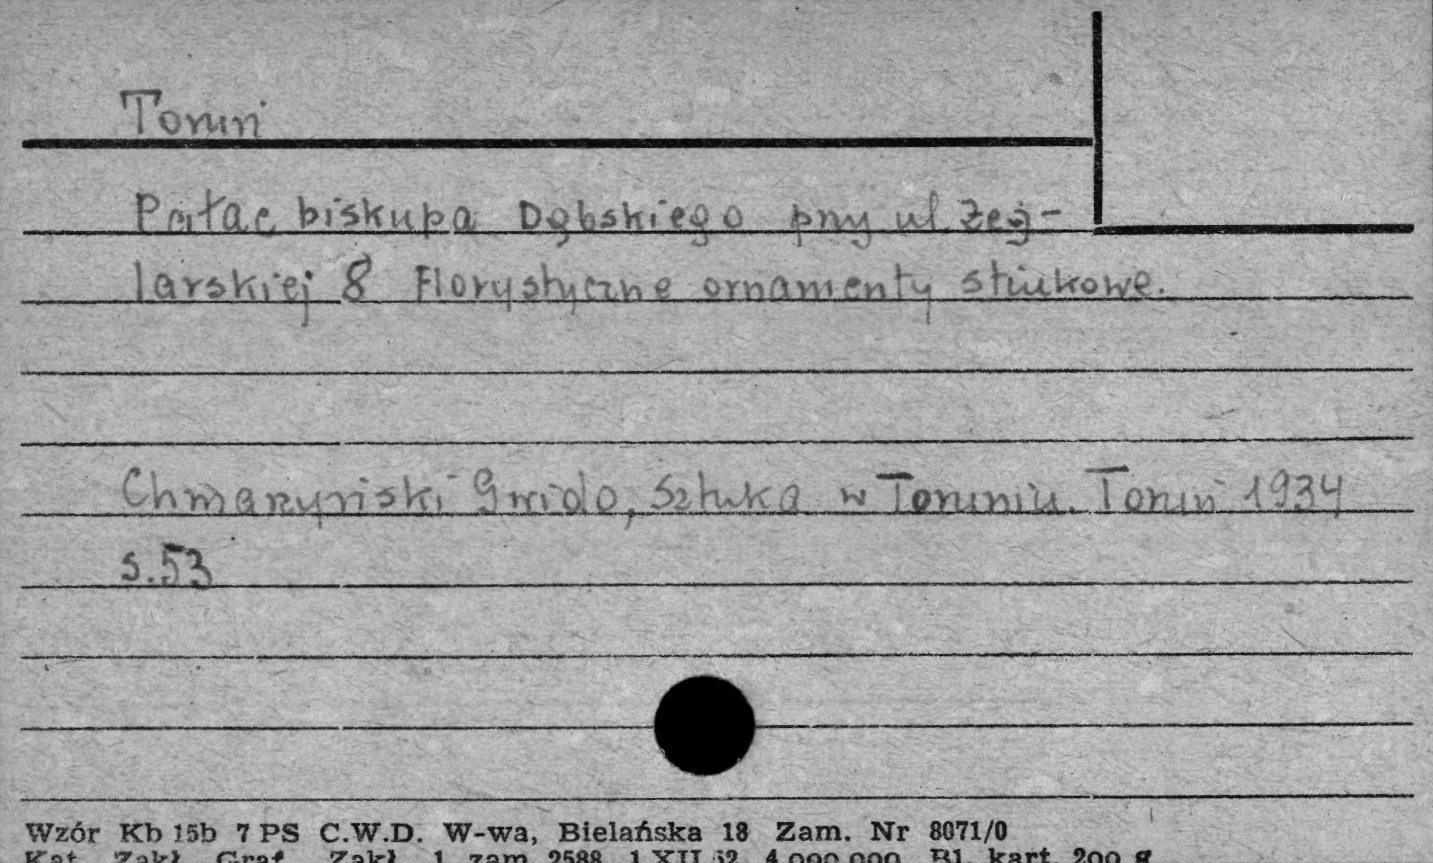 Toruń
Pałac biskupa Dąbskiego przy ul Żeg-
larskiej 8 Florystyczne ornamenty stiukowe.
Chmarzyński Gwido, Sztuka w Toruniu. Toruń 1934
s.53
Wzór Kb 15b 7 PS C.W.D. W-wa, Bielańska 18 Zam. Nr 8071/0
Kat. Zakł. Graf. Zakł. 1 zam. 2588 1 XII 52 4.000.000 Bl. kart. 200 g